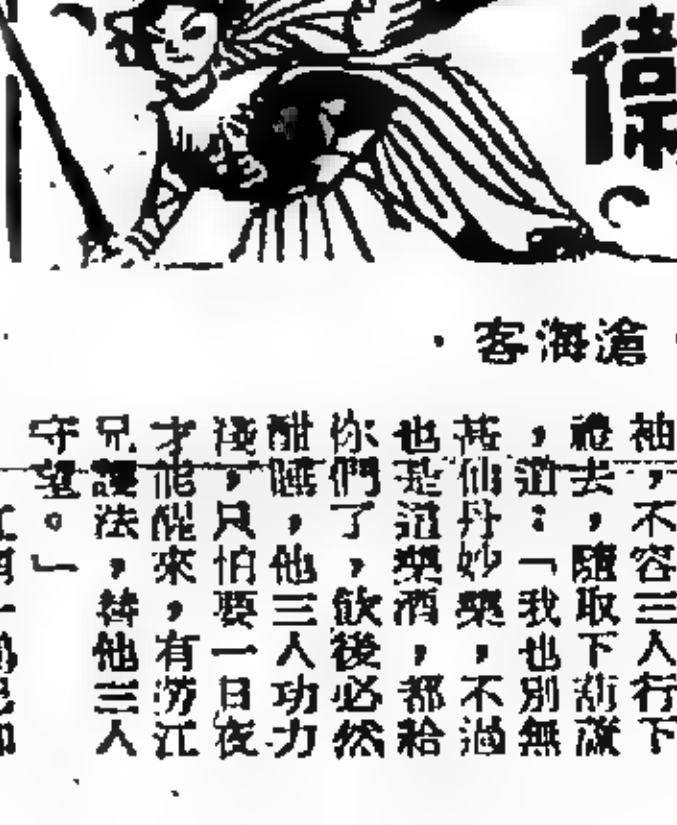 衞
滄海客
袖，不容三人行下
禮去，隨取下葫蘆
，道：「我也別無
甚仙丹妙藥，不過
也是這藥酒，都給
你們了，飲後必然
酣睡，他三人功力
淺，只怕要一日夜
才能醒來，有勞江
兄護法，替他三人
守望。」